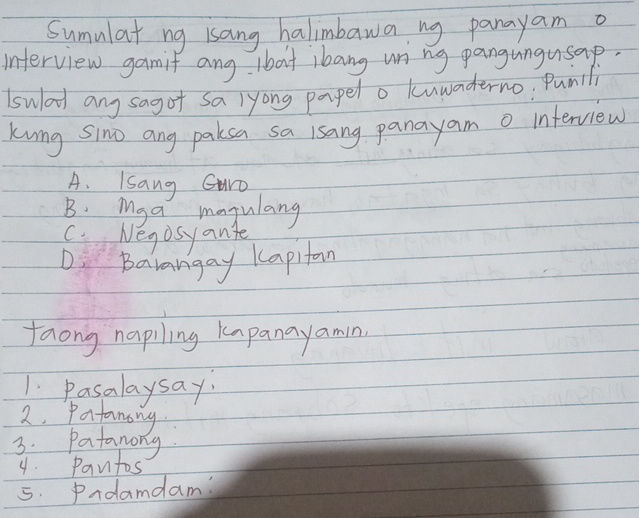 Sumulat ng isang halimbawa ng panayam o
interview gamit ang ibat ibang uri ng pangungusap.
Isulat ang sagot sa iyong papel o kuwaderno. Pumili
kung sino ang paksa sa isang panayam o interview
A. Isang Guro
B. Mga magulang
C. Negosyante
D. Barangay Kapitan
taong napiling kapanayamin.
1. Pasalaysay:
2. Patanong.
3. Patanong.
4. Pautos
5. Padamdam: